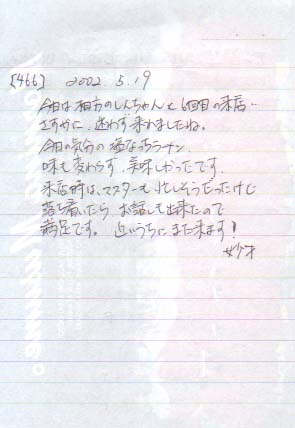 [466] 2002.5.19
今日は相方のしんちゃんと6回目の来店…
さすがに、迷わず来れましたね。
今日の気分の塩なのラーメン、
味も変わらず、美味しかったです。
来店時は、マスターも忙しそうだったけど
落ち着いたら お話しも出来たので
満足です。 近いうちにまた来ます!